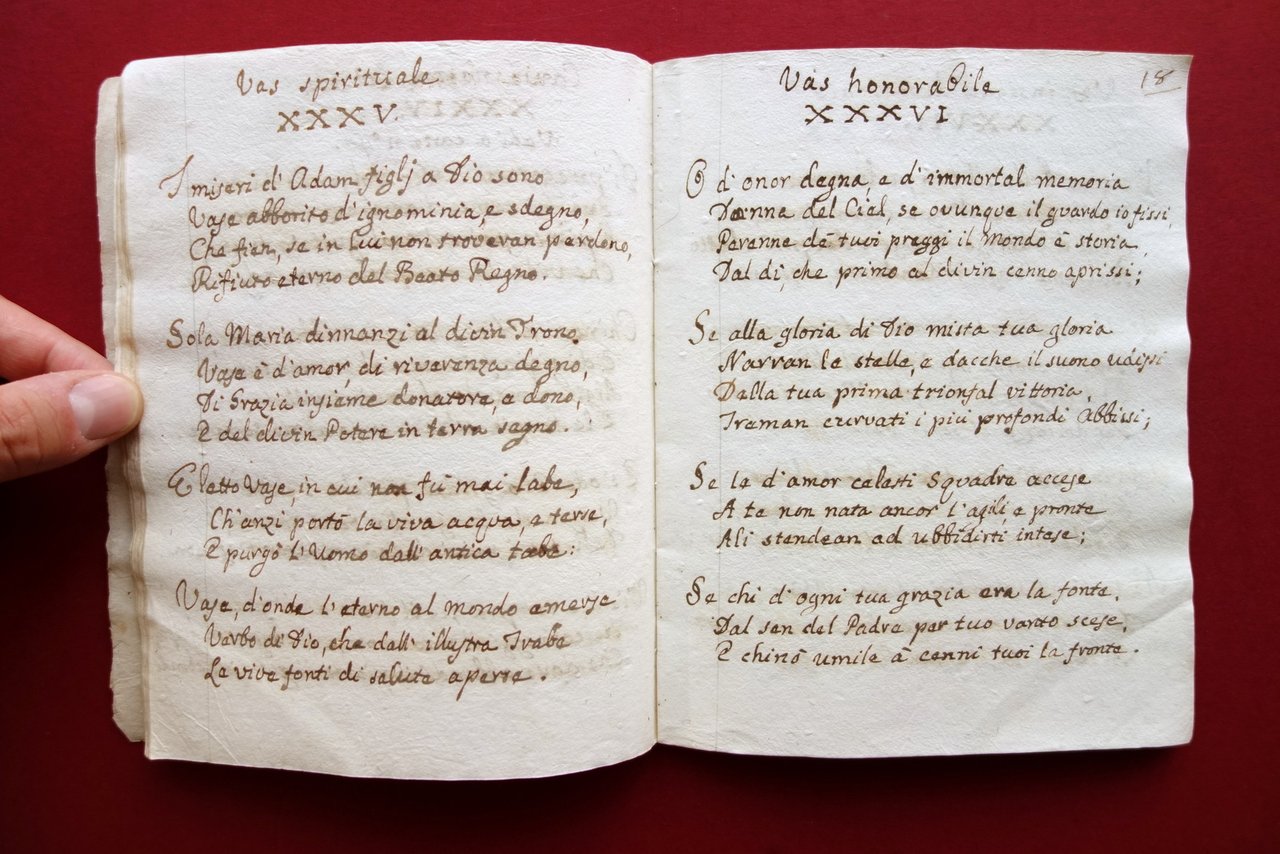 Vas spirituale
XXXV.
I miseri d' Adam figlj a Dio sono
Vase abborito d'ignominia, e sdegno,
Che fien, se in lui non troveran perdono,
Rifiuto eterno del Beato Regno.
Sola Maria dinnanzi al divin Trono
Vase è d'amor, di riverenza degno,
Di Grazia insieme donatore, e dono,
E del divin Potere in terra segno.
Eletto Vase, in cui non fù mai labe,
Ch'anzi portò la viva acqua, e terse,
E purgò l'Uomo dall' antica tabe:
Vase, d'onde l'eterno al mondo emerse
Verbo di Dio, che dall' illustre Trabe
Le vive fonti di salute aperse.
18
Vas honorabile
XXXVI
O d' onor degna, e d' immortal memoria
Donna del Ciel, se ovunque il guardo io fissi,
Perenne de tuoi preggi il Mondo è storia
Dal dì, che primo al divin cenno aprissi;
Se alla gloria di Dio mista tua gloria
Narran le stelle, e dacche il suono udissi
Della tua prima trionfal vittoria,
Treman curvati i più profondi Abbissi;
Se le d'amor celesti Squadre accese
A te non nata ancor l'agili, e pronte
Ali stendean ad ubbidirti intese;
Se chi d'ogni tua grazia era la fonte,
Dal sen del Padre per tuo vanto scese,
E chinò umile à cenni tuoi la fronte.